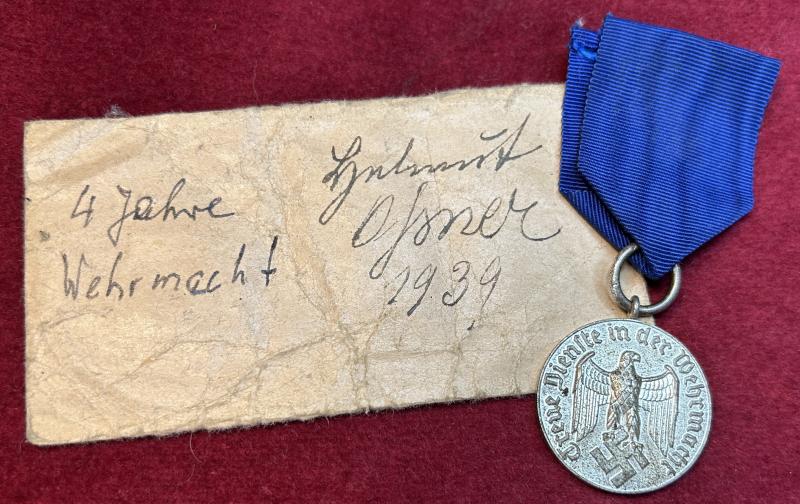 4 Jahre
Wehrmacht
Helmut
1939
Treue Dienste in der Wehrmacht